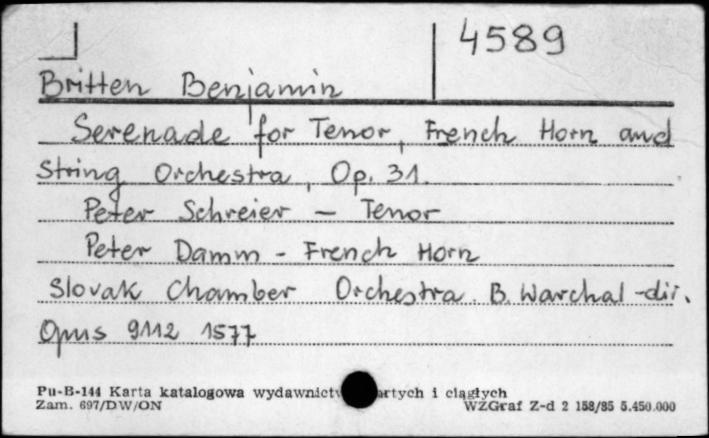 4589
Britten Benjamin
Serenade for Tenor, French Horn and
String Orchestra, Op. 31.
Peter Schreier – Tenor
Peter Damm - French Horn
Slovak Chamber Orchestra. B. Warchal -dir.
Opus 9112 1577
Pu-B-144 Karta katalogowa wydawnictw zwartych i ciągłych
Zam. 697/DW/ON WZGraf Z-d 2 158/85 5.450.000